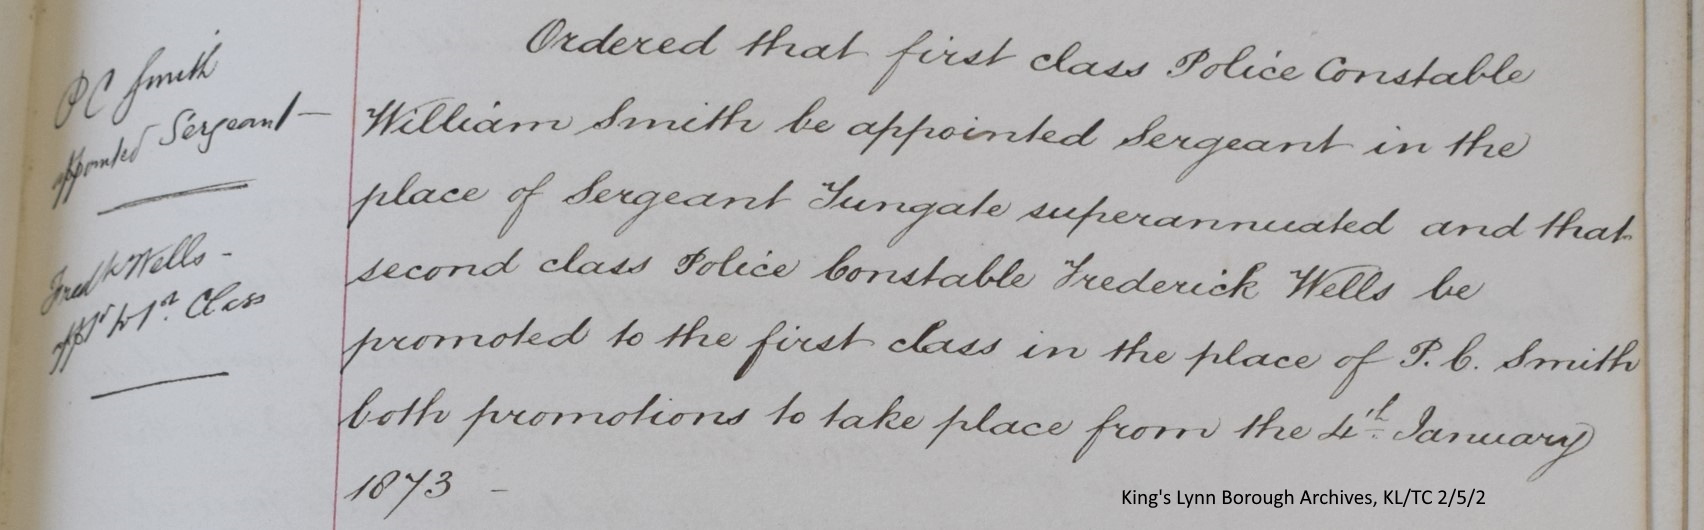 PC Smith
appointed Sergeant —
Fredk Wells -
appd to 1st. Class
Ordered that first class Police Constable
William Smith be appointed Sergeant in the
place of Sergeant Tungate superannuated and that
second class Police Constable Frederick Wells be
promoted to the first class in the place of P. C. Smith
both promotions to take place from the 4th January
1873 -
King's Lynn Borough Archives, KL/TC 2/5/2